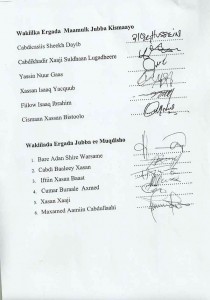 Wakiilka Ergada Maamulk Jubba Kismaayo
Cabdicasiis Sheekh Dayib
Cabdikhadir Xaaji Suldhaan Lugadheere
Yassin Nuur Gass
Xassan Isaaq Yacquub
Fiilow Isaaq Ibrahim
Cismann Xassan Bistoolo
Wakiilnda Ergada Jubba ee Muqdisho
1. Bare Adan Shire Warsame
2. Cabdi Baaleey Xasan
3. Iftiin Xasan Baasl
4. Cumar Buraale Axmed
5. Xasan Xaaji
6. Maxamed Aamiin Cabdullaahi